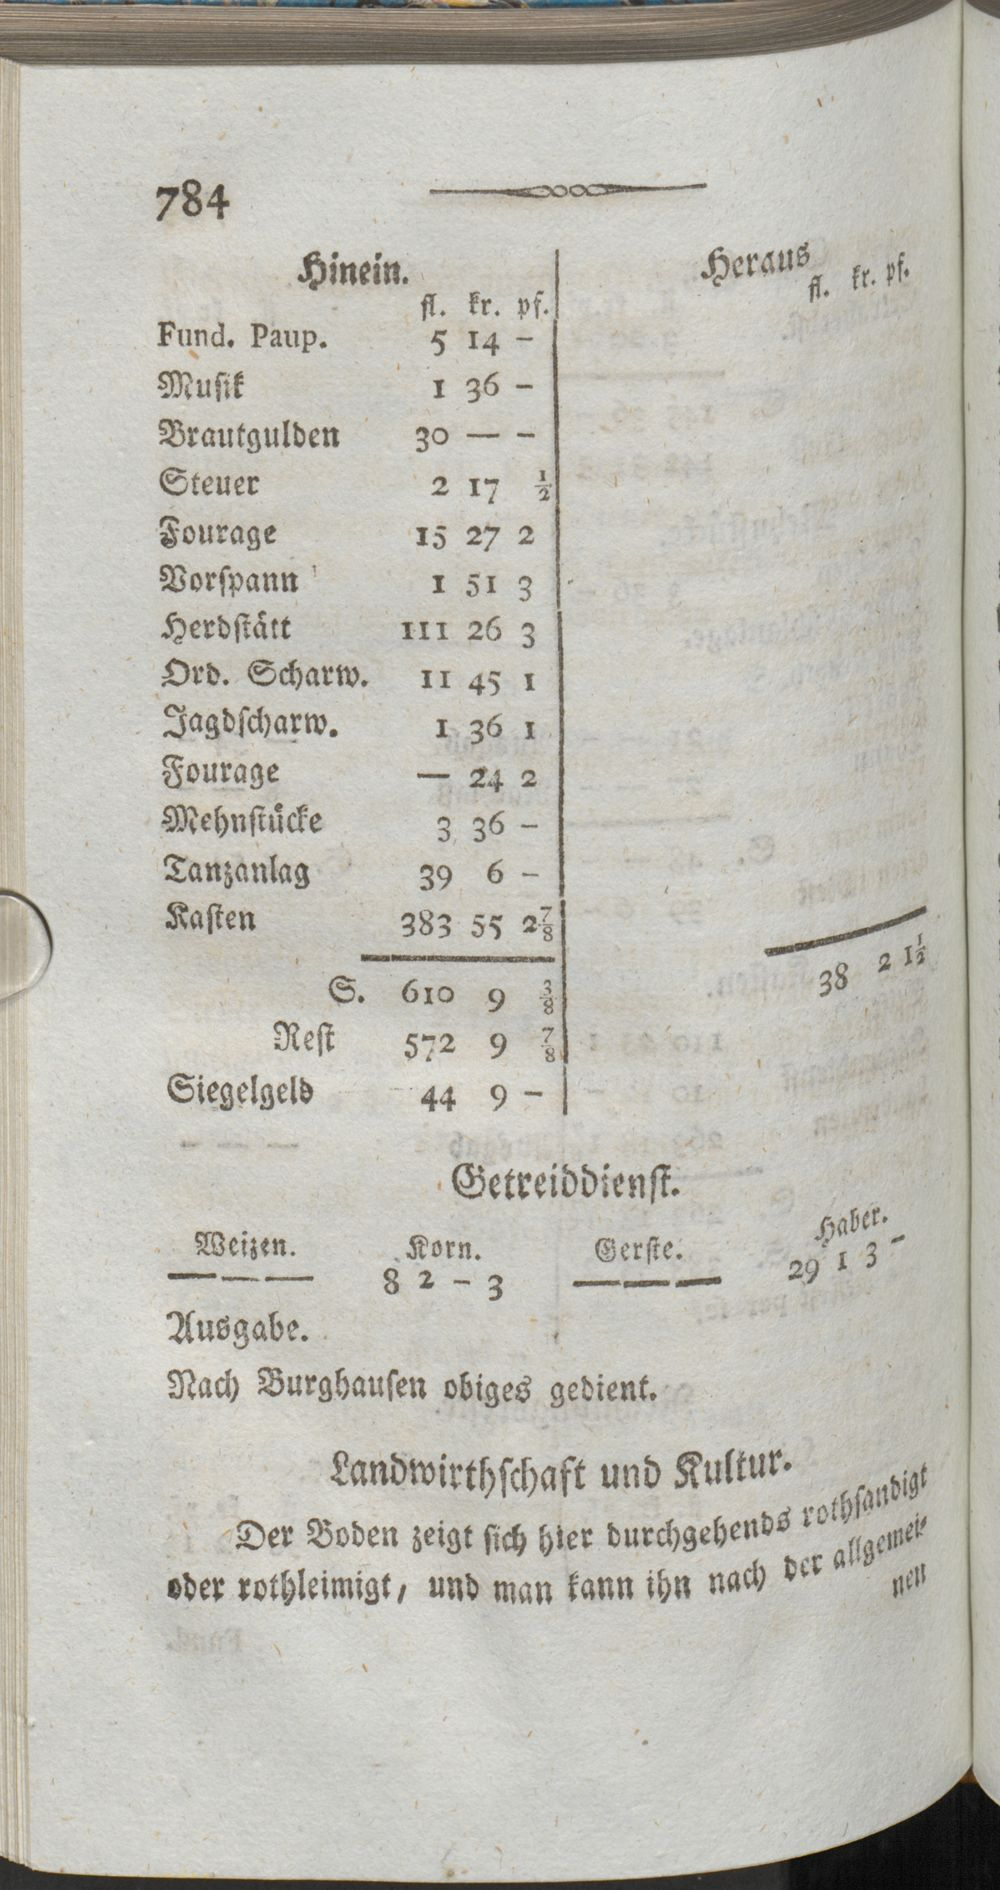 784
Hinein. Heraus
fl. kr. pf. fl. kr. pf.
Fund. Paup. 5 14 –
Muſik 1 36 –
Brautgulden 30 — –
Steuer 2 17 ½
Fourage 15 27 2
Vorſpann 1 51 3
Herdſtätt 111 26 3
Ord. Scharw. 11 45 1
Jagdſcharw. 1 36 1
Fourage — 24 2
Mehnſtücke 3 36 –
Tanzanlag 39 6 –
Kaſten 383 55 2⅞
S. 610 9 ⅜ 38 2 1½
Reſt 572 9 ⅞
Siegelgeld 44 9 –
Getreiddienſt.
Weizen. Korn. Gerſte. Haber.
— — — 8 2 – 3 — — — 29 1 3 –
Ausgabe.
Nach Burghauſen obiges gedient.
Landwirthſchaft und Kultur.
Der Boden zeigt ſich hier durchgehends rothſandigt
oder rothleimigt, und man kann ihn nach der allgemei-
nen